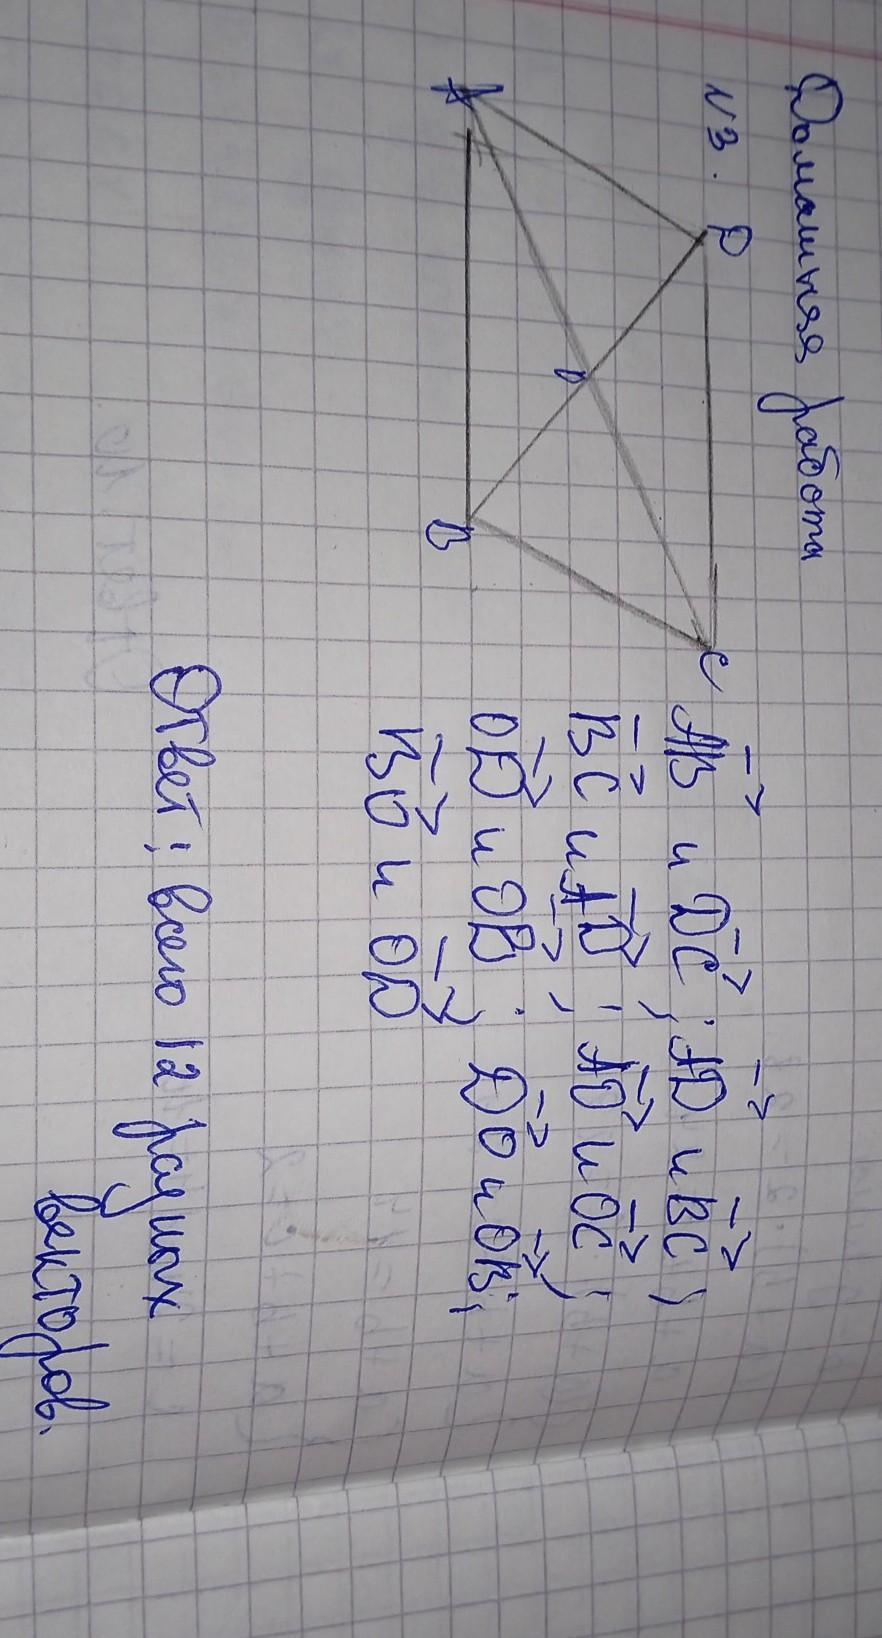 Домашняя работа
N3.
D
A
O
B
C
AB и DC; AD и BC;
BC и AD; AO и OC;
OD и OB; DO и OB;
BO и OD
Ответ: всего 12 разных
векторов.